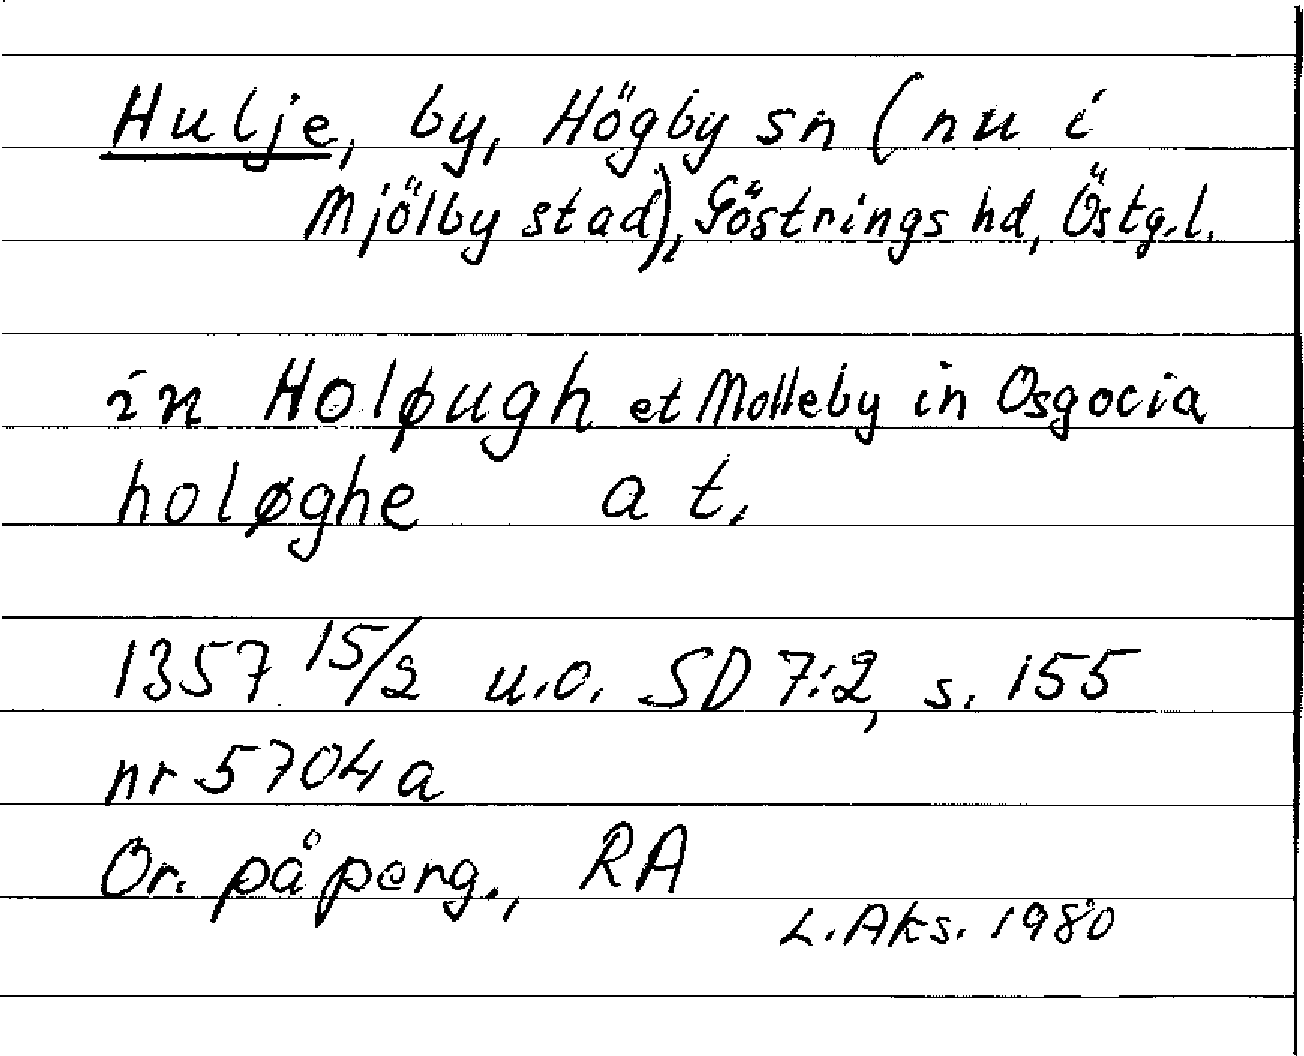 Hulje, by, Högby sn (nu i
Mjölby stad), Göstrings hd, Östg.l.
in Holøugh et Molleby in Osgocia
holøghe a t.
1357 15/2 u.o. SD 7:2, s. 155
nr 5704 a
Or. på perg., RA
L. Aks. 1980